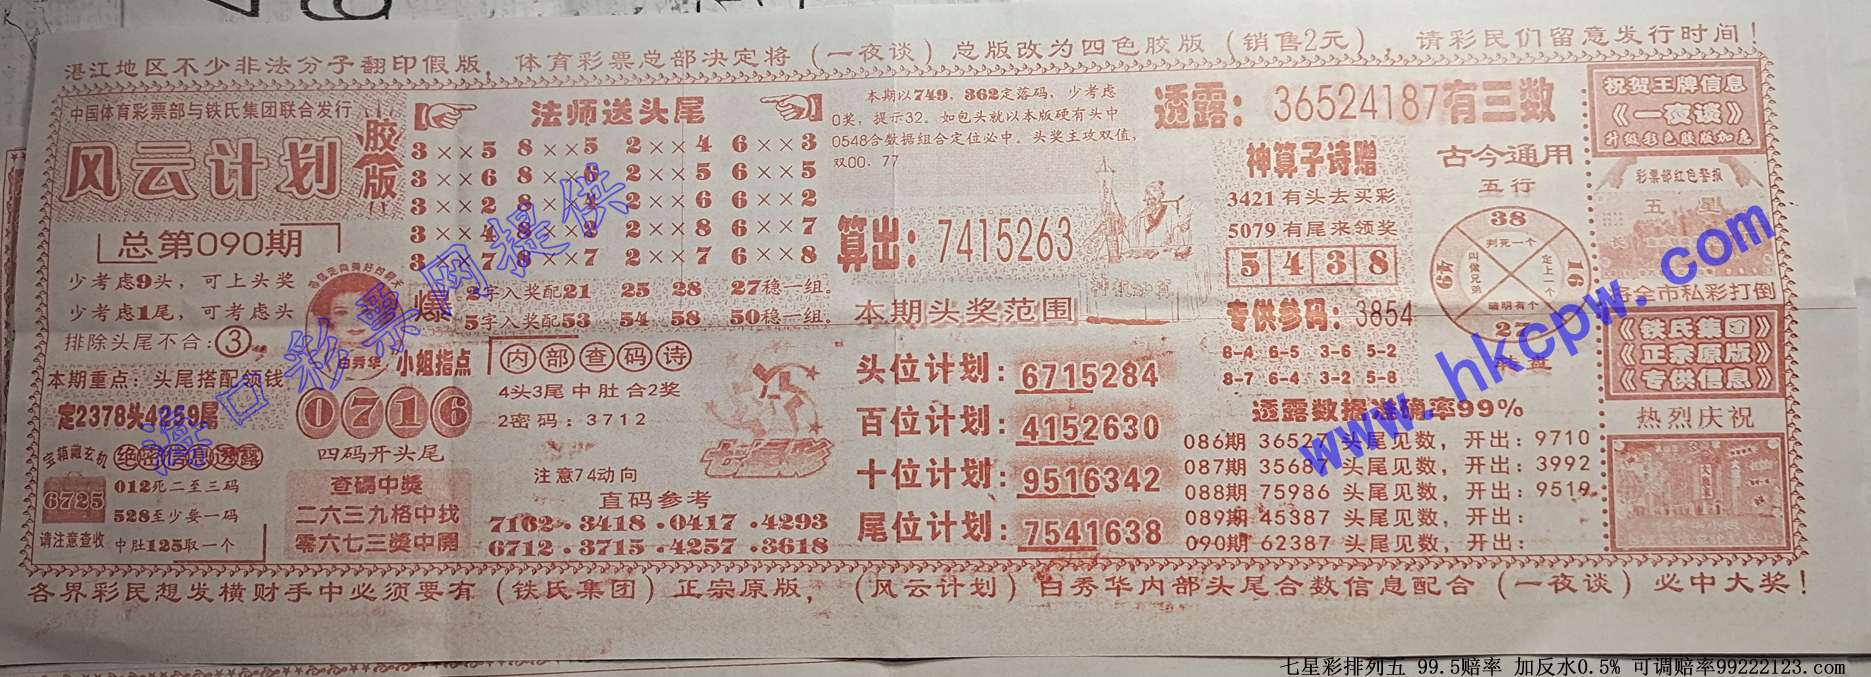 湛江地区不少非法分子翻印假版，体育彩票总部决定将（一夜谈）总版改为四色胶版（销售2元），请彩民们留意发行时间！
中国体育彩票部与铁氏集团联合发行
风云计划
胶版
总第090期
少考虑9头，可上头奖
少考虑1尾，可考虑头
排除头尾不合：③
本期重点：头尾搭配领钱
定2378头4259尾
宝箱藏玄机
绝密信息透露
6725
012死二至三码
528至少要一码
请注意查收
中肚125取一个
法师送头尾
3××5 8××5 2××4 6××3
3××6 8××6 2××5 6××5
3××2 8××4 2××6 6××2
3××4 8××2 2××8 6××7
3××7 8××7 2××7 6××8
爆
2字入奖配21 25 28 27稳一组。
5字入奖配53 54 58 50稳一组。
白秀华
小姐指点
0716
四码开头尾
查码中獎
二六三九格中找
零六七三獎中開
内部查码诗
4头3尾中肚合2奖
2密码：3712
注意74动向
直码参考
7162·3418·0417·4293
6712·3715·4257·3618
七星彩
本期以749、362定落码，少考虑
0奖，提示32。如包头就以本版硬有头中
0548合数据组合定位必中。头奖主攻双值，
双00、77
算出：7415263
本期头奖范围
头位计划：6715284
百位计划：4152630
十位计划：9516342
尾位计划：7541638
透露：36524187有三数
神算子诗赠
3421有头去买彩
5079有尾来领奖
5438
专供参码：3854
8-4 6-5 3-6 5-2
8-7 6-4 3-2 5-8
古今通用
五行
38
判死一个
49
叫像兄弟
定上一个
16
聪明有个
27
透露数据准确率99%
086期 36527 头尾见数，开出：9710
087期 35687 头尾见数，开出：3992
088期 75986 头尾见数，开出：9519
089期 45387 头尾见数，开出：
090期 62387 头尾见数，开出：
祝贺王牌信息
《一夜谈》
升级彩色胶版加急
彩票部红色警报
五星
将全市私彩打倒
《铁氏集团》
《正宗原版》
《专供信息》
热烈庆祝
各界彩民想发横财手中必须要有（铁氏集团）正宗原版，（风云计划）白秀华内部头尾合数信息配合（一夜谈）必中大奖！
海口彩票网提供
www.hkcpw.com
七星彩排列五 99.5赔率 加反水0.5% 可调赔率99222123.com